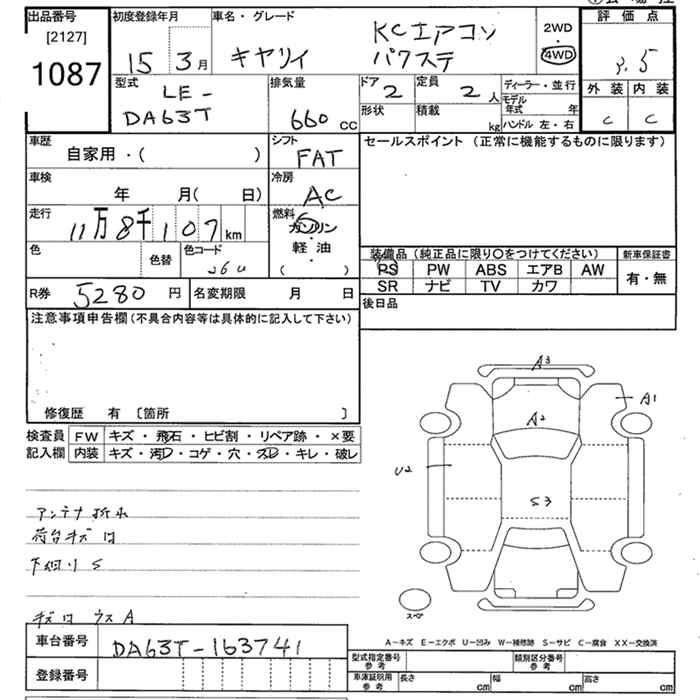 出品番号 [2127] 1087
初度登録年月 15 3月
車名・グレード キヤリイ KCエアコン パワステ
2WD ・ 4WD
評価点 3.5
外装 内装
C C
型式 LE- DA63T
排気量 660 cc
ドア 2 定員 2人
形状 積載 kg
ディーラー・並行
モデル年式 年
ハンドル 左・右
車歴 自家用・( )
シフト FAT
セールスポイント (正常に機能するものに限ります)
車検 年 月( 日)
冷房 AC
走行 11万8千107km
燃料 ガソリン ・ 軽油 ・ ( )
色 色替 色コード 26U
装備品(純正品に限り〇をつけてください) 新車保証書
PS PW ABS エアB AW 有・無
SR ナビ TV カワ
R券 5280円 名変期限 月 日
後日品
注意事項申告欄(不具合内容等は具体的に記入して下さい)
修復歴 有 〔箇所 〕
検査員 FW キズ・飛石・ヒビ割・リペア跡・×要
記入欄 内装 キズ・汚レ・コゲ・穴・スレ・キレ・破レ
A3
A1
A2
U2
S3
スペア
アンテナ折れ
荷台キズ凹
下廻りS
キズ凹 ウスA
A-キズ E-エクボ U-凹み W-補修跡 S-サビ C-腐食 XX-交換済
車台番号 DA63T-163741
登録番号
型式指定番号 参考 類別区分番号 参考
車庫証明用 参考 長さ cm 幅 cm 高さ cm